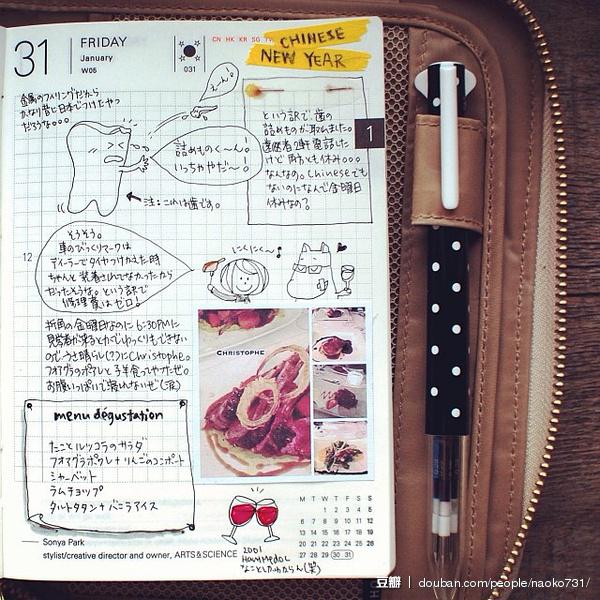 31
FRIDAY
January
W05
031
CN HK KR SG TW
CHINESE
NEW YEAR
金属のフィリングだから
かなり昔に日本でつけたやつ
だろうな。。。
えーん。
詰めものく〜ん!
いっちゃやだ〜!
注:これは歯です。
という訳で、歯の
詰めものが取れました。
歯医者2軒電話した
けど両方とも休み...
なんなの。Chineseでも
ないのになんで金曜日
休みなの?
1
12
そうそう。
車のびっくりマークは
ディーラーでタイヤつけかえた時
ちゃんと装着されてなかったから
だったそうな。という訳で
修理費はゼロ!
にくにく〜♪
折角の金曜日なのに6:30PMに
見学者が来るとかでゆっくりもできない
のでうさ晴らし(?)にChristophe。
フォアグラのポワレと子羊食ってやったぜ。
お腹いっぱいで寝れないぜ(涙)
CHRISTOPHE
menu dégustation
たことルッコラのサラダ
フォアグラポワレ+りんごのコンポート
シャーベット
ラムチョップ
タルトタタン+バニラアイス
M T W T F S S
1 2 3 4 5
6 7 8 9 10 11 12
13 14 15 16 17 18 19
20 21 22 23 24 25 26
27 28 29 30 31
Sonya Park
stylist/creative director and owner, ARTS&SCIENCE
2001
豆瓣 | douban.com/people/naoko731/